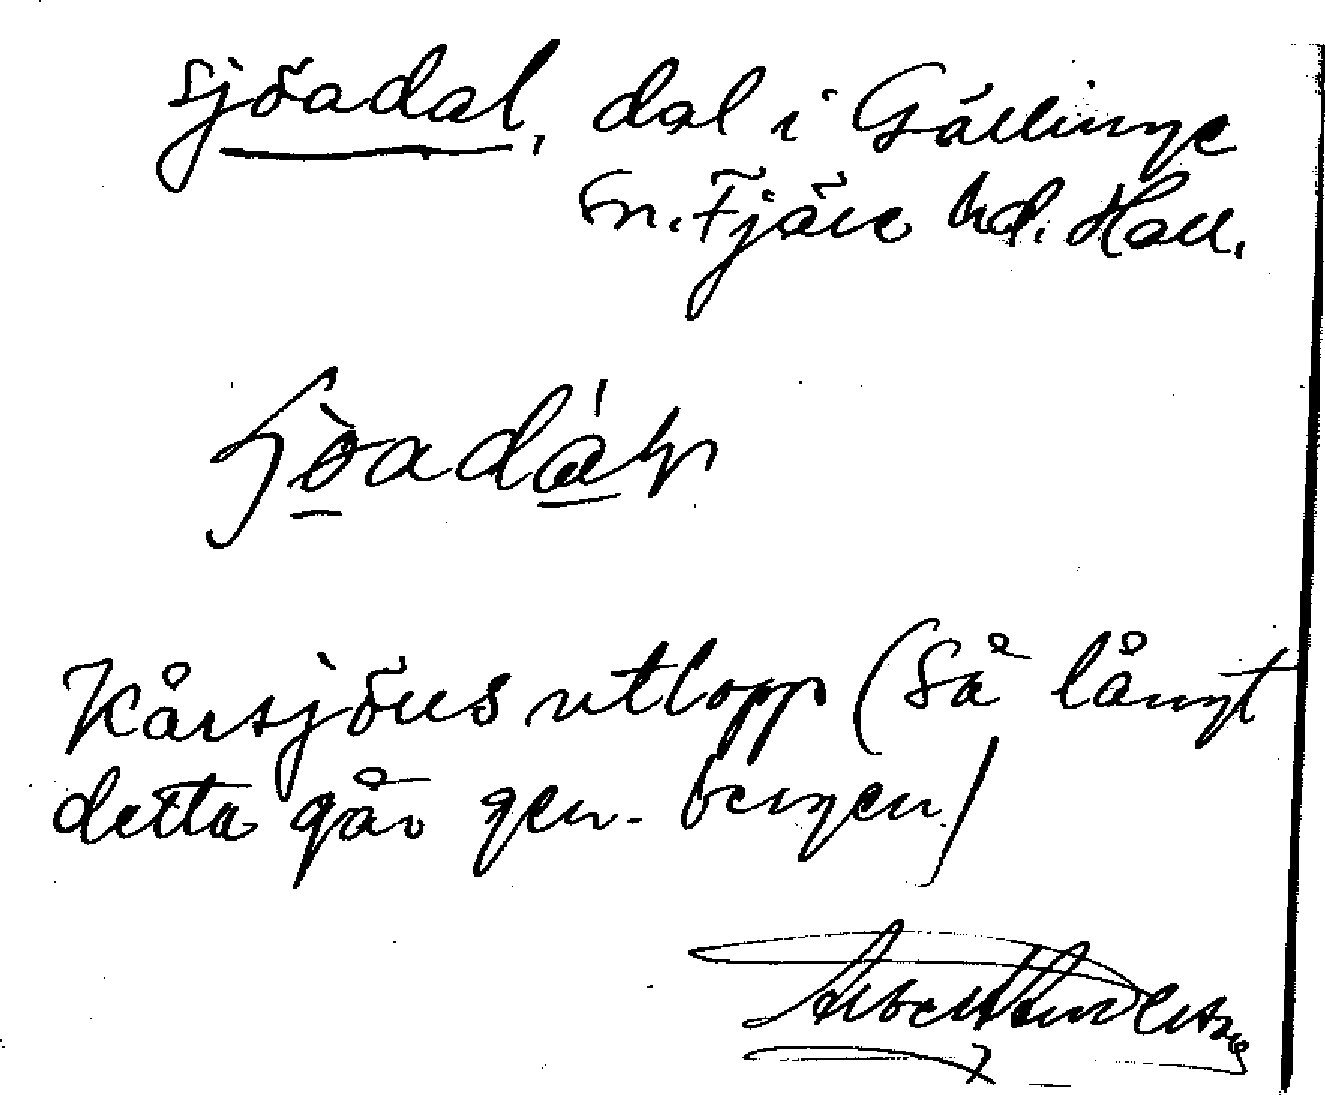 Sjöadal, dal i Gällinge
sn. Fjäre hd. Hall.
Kårsjöns utlopp (så långt
detta går gen. bergen)